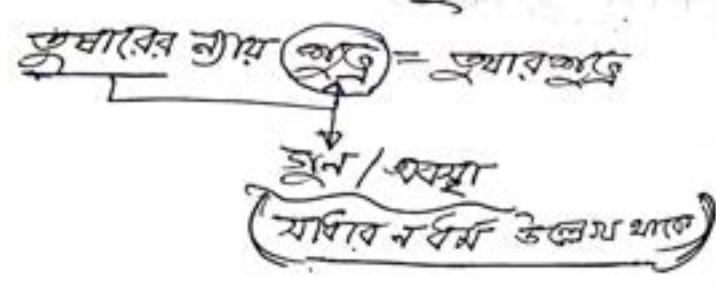 তুষারের ন্যায় শুভ্র = তুষারশুভ্র
গুন / অবস্থা
সাধারন ধর্ম উল্লেখ থাকে